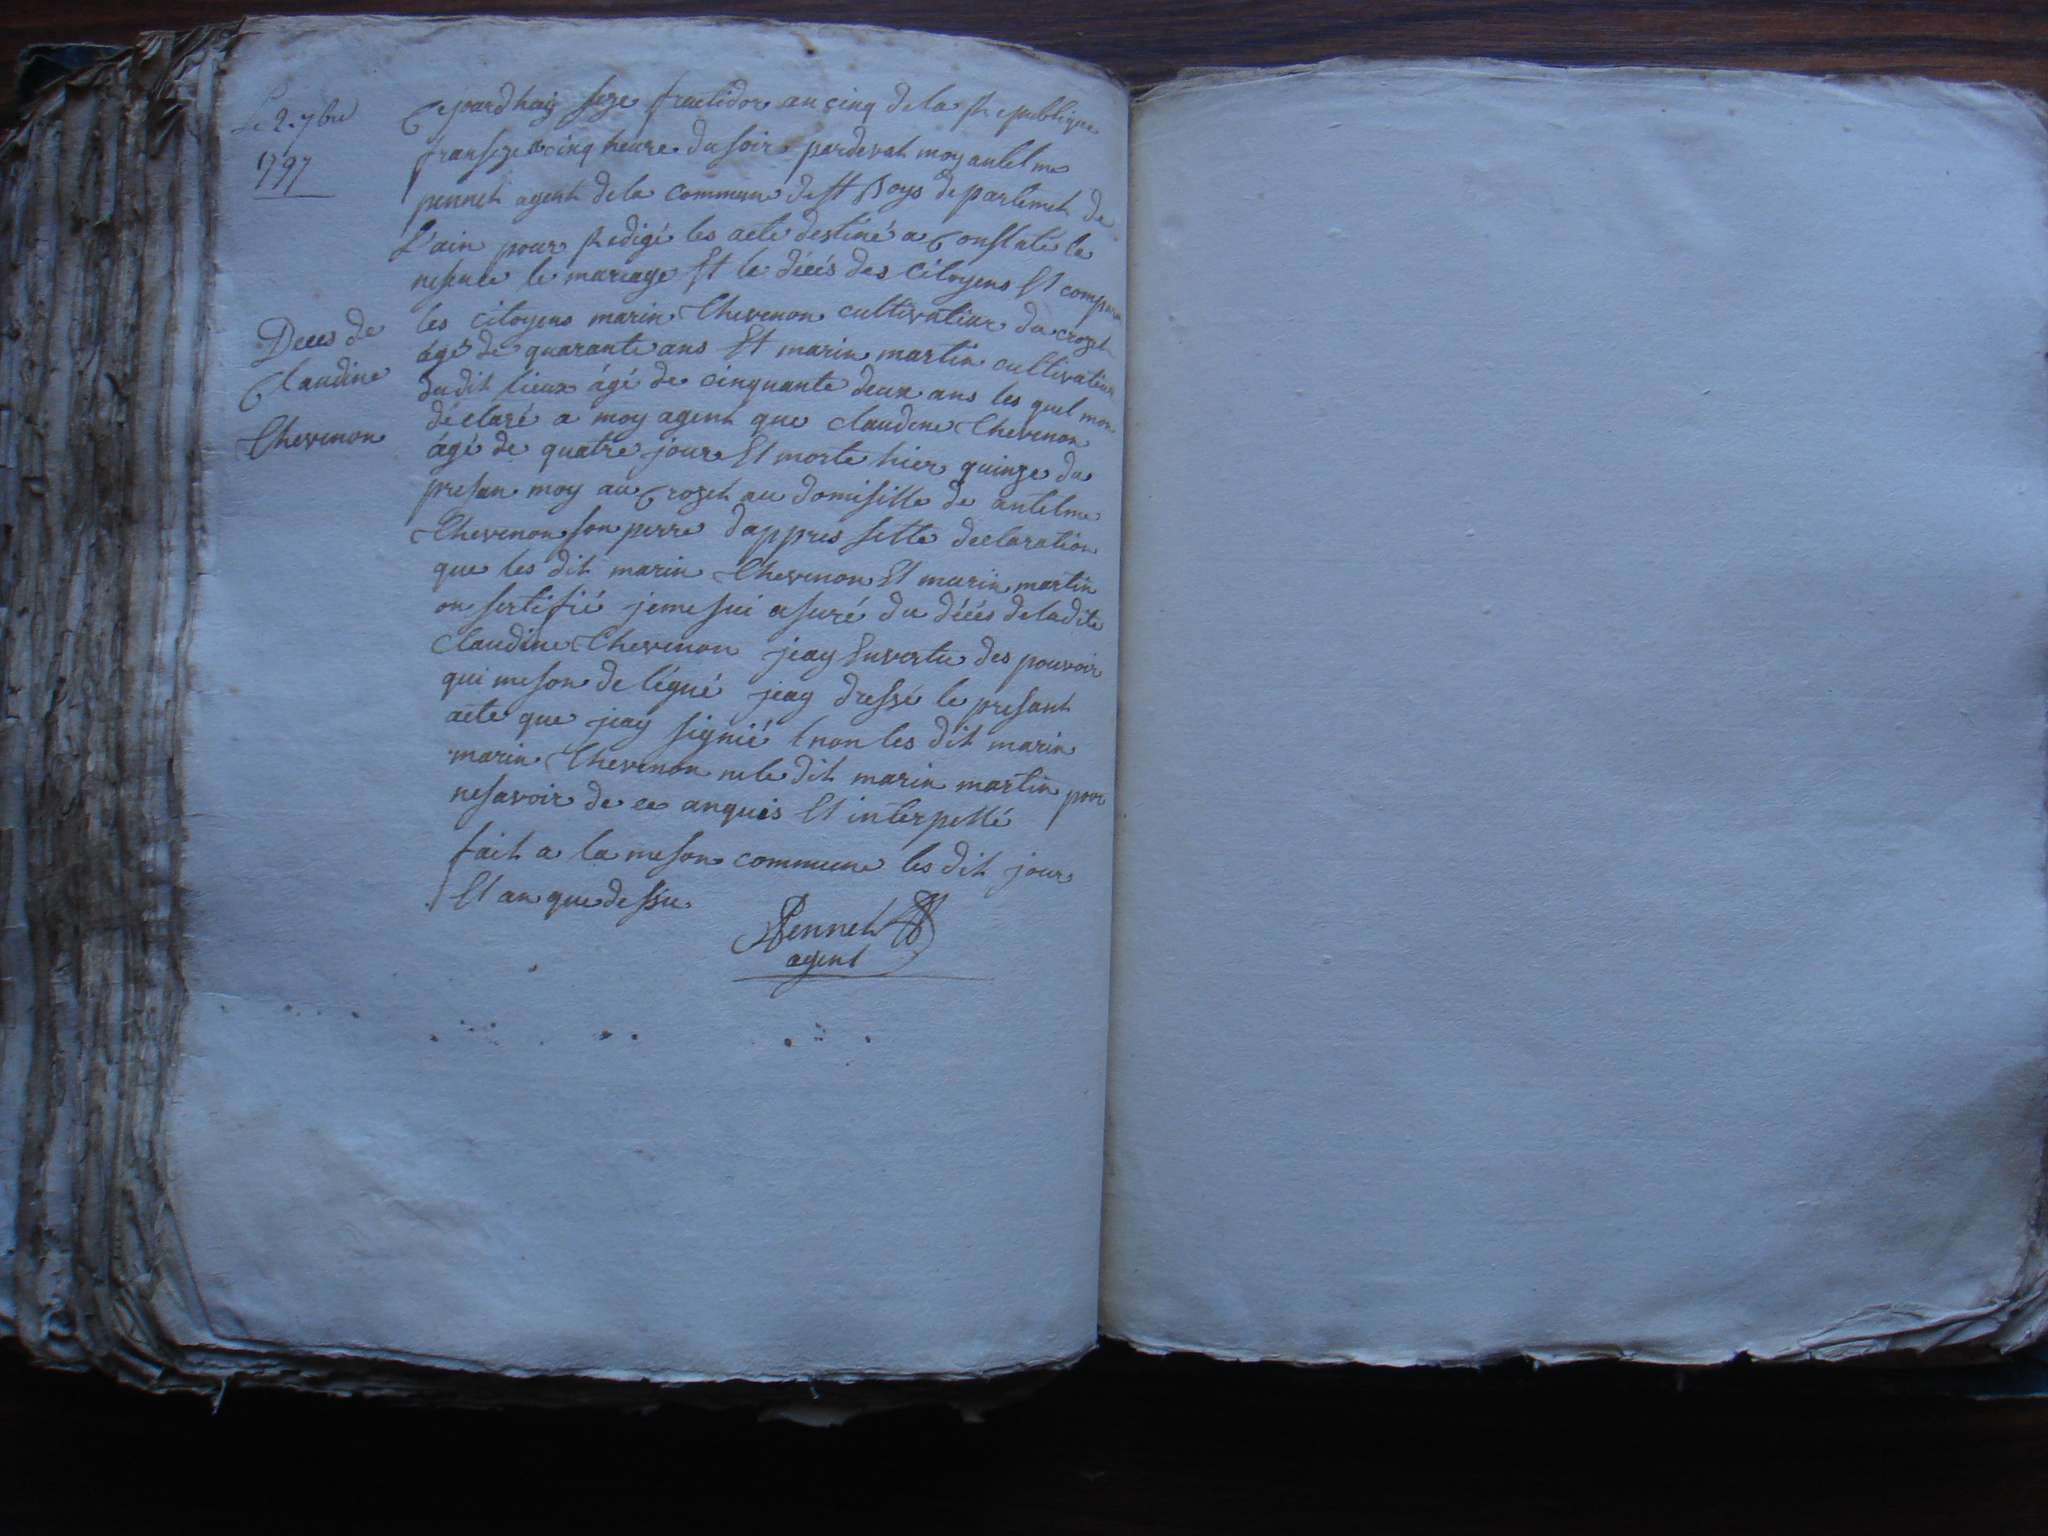 Le 2. 7bre
1797
Deces de
Claudine
Chevenon
Cejourdhuy seze fructidor an cinq de la Republique
franseze a cinq heure du soir pardevat moy antelme
pennet agent de la commune de St Boys departemet de
L'ain pour Redigé les acte destiné a Constaté la
nesence le mariage Et le décés des Citoyens Et compara
les citoyens marin Chevenon cultivateur du crozet
agé de quarante ans Et marin martin cultivateur
dudit lieux agé de cinquante deux ans les quel mon
déclaré a moy agent que claudine Chevenon
agé de quatre jour Et morte hier quinze du
presan moy au Crozet au domisille de antelme
Chevenon son perre dappres sette declaration
que les dit marin Chevenon Et marin martin
on sertifié jeme sui asuré du décés deladite
Claudine Chevenon jeay Envertu des pouvoir
qui meson delégué jeay dressé le presant
acte que jeay signié Enon les dit marin
marin Chevenon ne le dit marin martin pour
nesavoir de ce anquis Et interpellé
fait a la meson commune les dit jour
Et an que dessu
Pennet
agent